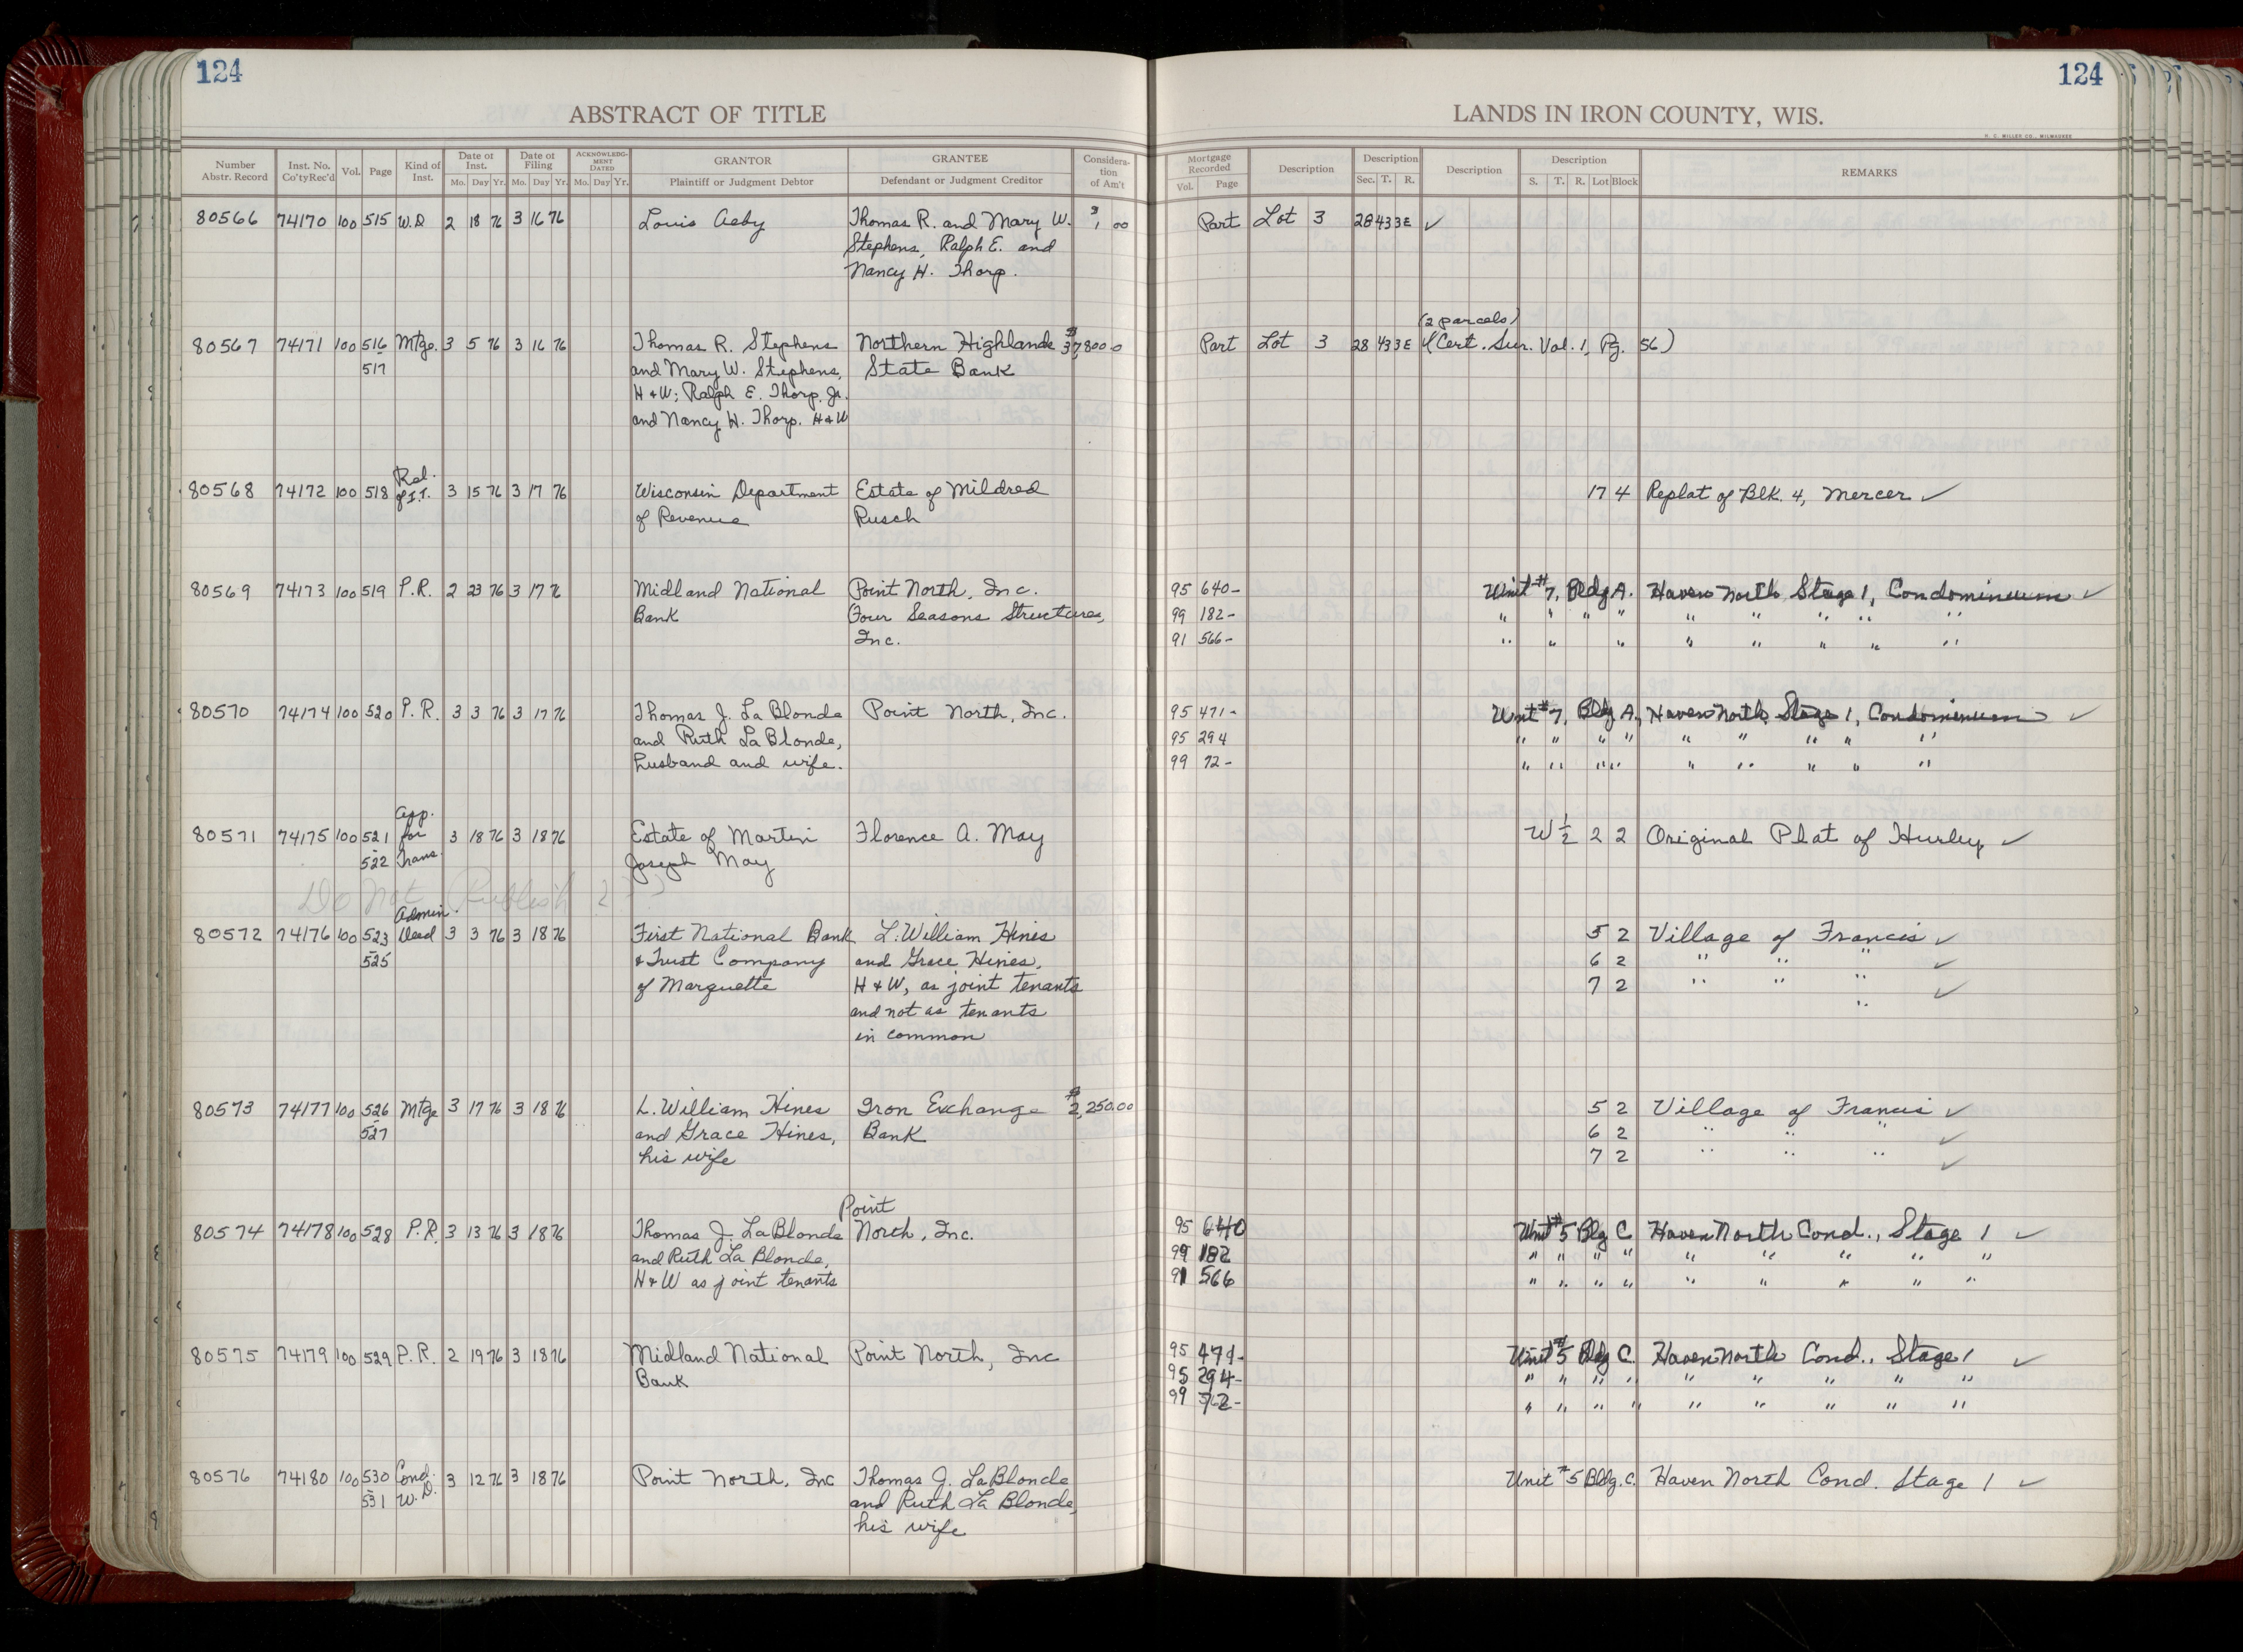 124
124
ABSTRACT OF TITLE
LANDS IN IRON COUNTY, WIS.
H. C. MILLER CO., MILWAUKEE
Number Abstr. Record Inst. No. Co'ty Rec'd Vol. Page Kind of Inst. Date of Inst. Mo. Day Yr. Date of Filing Mo. Day Yr. ACKNOWLEDGMENT DATED Mo. Day Yr. GRANTOR Plaintiff or Judgment Debtor GRANTEE Defendant or Judgment Creditor Consideration of Am't
Mortgage Recorded Vol. Page Description Description Sec. T. R. Description Description S. T. R. Lot Block REMARKS
80566 74170 100 515 W.D 2 18 76 3 16 76 Louis Aeby Thomas R. and Mary W. $1 00 Part Lot 3 28 43 3E ✓
Stephens, Ralph E. and
Nancy H. Thorp.
(2 parcels)
80567 74171 100 516 Mtge. 3 5 76 3 16 76 Thomas R. Stephens Northern Highland $37,800.0 Part Lot 3 28 43 3E (Cert. Sur. Vol. 1, Pg. 56)
517 and Mary W. Stephens, State Bank
H & W; Ralph E. Thorp, Jr.
and Nancy H. Thorp. H & W
Rel.
80568 74172 100 518 of I.T. 3 15 76 3 17 76 Wisconsin Department Estate of Mildred 17 4 Replat of Blk. 4, Mercer ✓
of Revenue Rusch
80569 74173 100 519 P.R. 2 23 76 3 17 76 Midland National Point North, Inc. 95 640- Unit #7, Bldg A. Haven North, Stage 1, Condominium ✓
Bank Four Seasons Structures, 99 182- " " " " " " " " "
Inc. 91 566- " " " " " " " "
80570 74174 100 520 P.R. 3 3 76 3 17 76 Thomas J. La Blonde Point North, Inc. 95 471- Unit #7, Bldg A, Haven North, Stage 1, Condominium ✓
and Ruth La Blonde, 95 294 " " " " " " " " "
husband and wife. 99 72- " " " " " " " " "
App.
80571 74175 100 521 for 3 18 76 3 18 76 Estate of Martin Florence A. May W ½ 2 2 Original Plat of Hurley ✓
522 Trans. Joseph May
Do Not Publish 2
Admin.
80572 74176 100 523 Deed 3 3 76 3 18 76 First National Bank L. William Hines 5 2 Village of Francis ✓
525 & Trust Company and Grace Hines, 6 2 " " " ✓
of Marquette H & W, as joint tenants 7 2 " " " ✓
and not as tenants "
in common
80573 74177 100 526 Mtge 3 17 76 3 18 76 L. William Hines Iron Exchange $2,250.00 5 2 Village of Francis ✓
527 and Grace Hines, Bank 6 2 " " " ✓
his wife 7 2 " " " ✓
Point
80574 74178 100 528 P.R. 3 13 76 3 18 76 Thomas J. LaBlonde North, Inc. 95 640 Unit #5 Blg C Haven North Cond., Stage 1 ✓
and Ruth La Blonde, 99 182 " " " " " " " " "
H & W as joint tenants 91 566 " " " " " " " " "
80575 74179 100 529 P.R. 2 19 76 3 18 76 Midland National Point North, Inc 95 471- Unit #5 Bldg C. Haven North Cond., Stage 1 ✓
Bank 95 294- " " " " " " " " "
99 72- " " " " " " " " "
80576 74180 100 530 Cond. 3 12 76 3 18 76 Point North, Inc Thomas J. LaBlonde Unit #5 Bldg. C. Haven North Cond. Stage 1 ✓
531 W.D. and Ruth La Blonde,
his wife